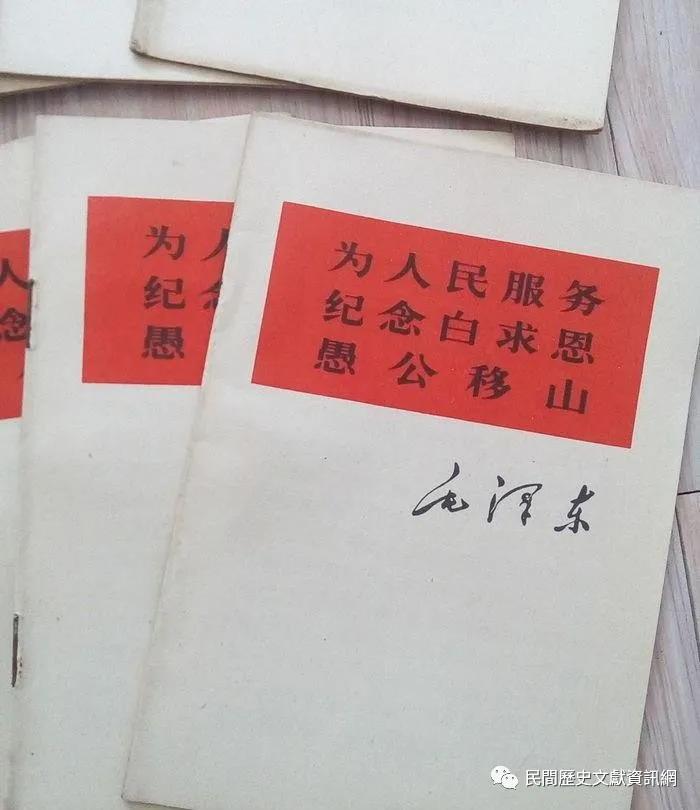 人
念
为人
纪念
愚
为人民服务
纪念白求恩
愚公移山
毛泽东
民間歷史文獻資訊網